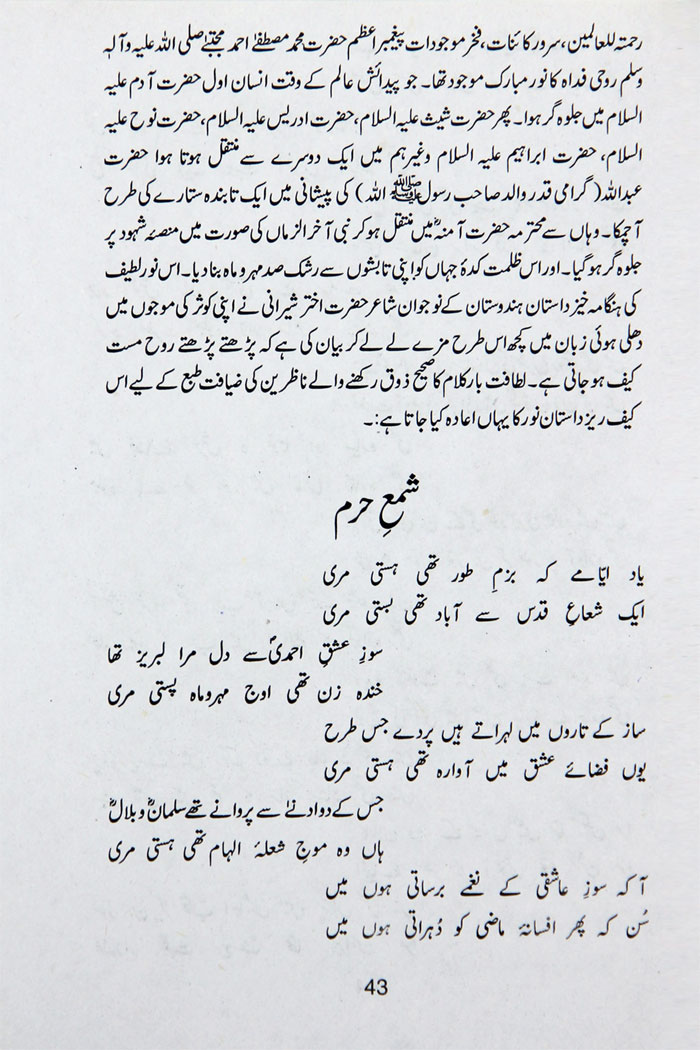 رحمتہ للعالمین، سرور کائنات، فخر موجودات پیغمبر اعظم حضرت محمد مصطفےٰ احمد مجتبےٰ صلی اللہ علیہ و آلہٖ
وسلم روحی فداہ کا نور مبارک موجود تھا۔ جو پیدائش عالم کے وقت انسان اول حضرت آدم علیہ
السلام میں جلوہ گر ہوا۔ پھر حضرت شیث علیہ السلام، حضرت ادریس علیہ السلام، حضرت نوح علیہ
السلام، حضرت ابراہیم علیہ السلام وغیرہم میں ایک دوسرے سے منتقل ہوتا ہوا حضرت
عبداللہ (گرامی قدر والد صاحب رسول ﷺ اللہ) کی پیشانی میں ایک تابندہ ستارے کی طرح
آچمکا۔ وہاں سے محترمہ حضرت آمنہؓ میں منتقل ہو کر نبی آخر الزماں کی صورت میں منصۂ شہود پر
جلوہ گر ہو گیا۔ اور اس ظلمت کدۂ جہاں کو اپنی تابشوں سے رشک صد مہر و ماہ بنا دیا۔ اس نور لطیف
کی ہنگامہ خیز داستان ہندوستان کے نوجوان شاعر حضرت اختر شیرانی نے اپنی کوثر کی موجوں میں
دھلی ہوئی زبان میں کچھ اس طرح مزے لے لے کر بیان کی ہے کہ پڑھتے پڑھتے روح مست
کیف ہو جاتی ہے۔ لطافت بار کلام کا صحیح ذوق رکھنے والے ناظرین کی ضیافت طبع کے لیے اس
کیف ریز داستان نور کا یہاں اعادہ کیا جاتا ہے:۔
شمعِ حرم
یاد ایّامے کہ بزمِ طور تھی ہستی مری
ایک شعاعِ قدس سے آباد تھی بستی مری
سوزِ عشقِ احمدیؐ سے دل مرا لبریز تھا
خندہ زن تھی اوج مہر و ماہ پستی مری
ساز کے تاروں میں لہراتے ہیں پردے جس طرح
یوں فضائے عشق میں آوارہ تھی ہستی مری
جس کے دوادنےٰ سے پروانے تھے سلمانؓ و بلالؓ
ہاں وہ موجِ شعلۂ الہام تھی ہستی مری
آ کہ سوزِ عاشقی کے نغمے برساتی ہوں میں
سُن کہ پھر افسانۂ ماضی کو دُہراتی ہوں میں
43